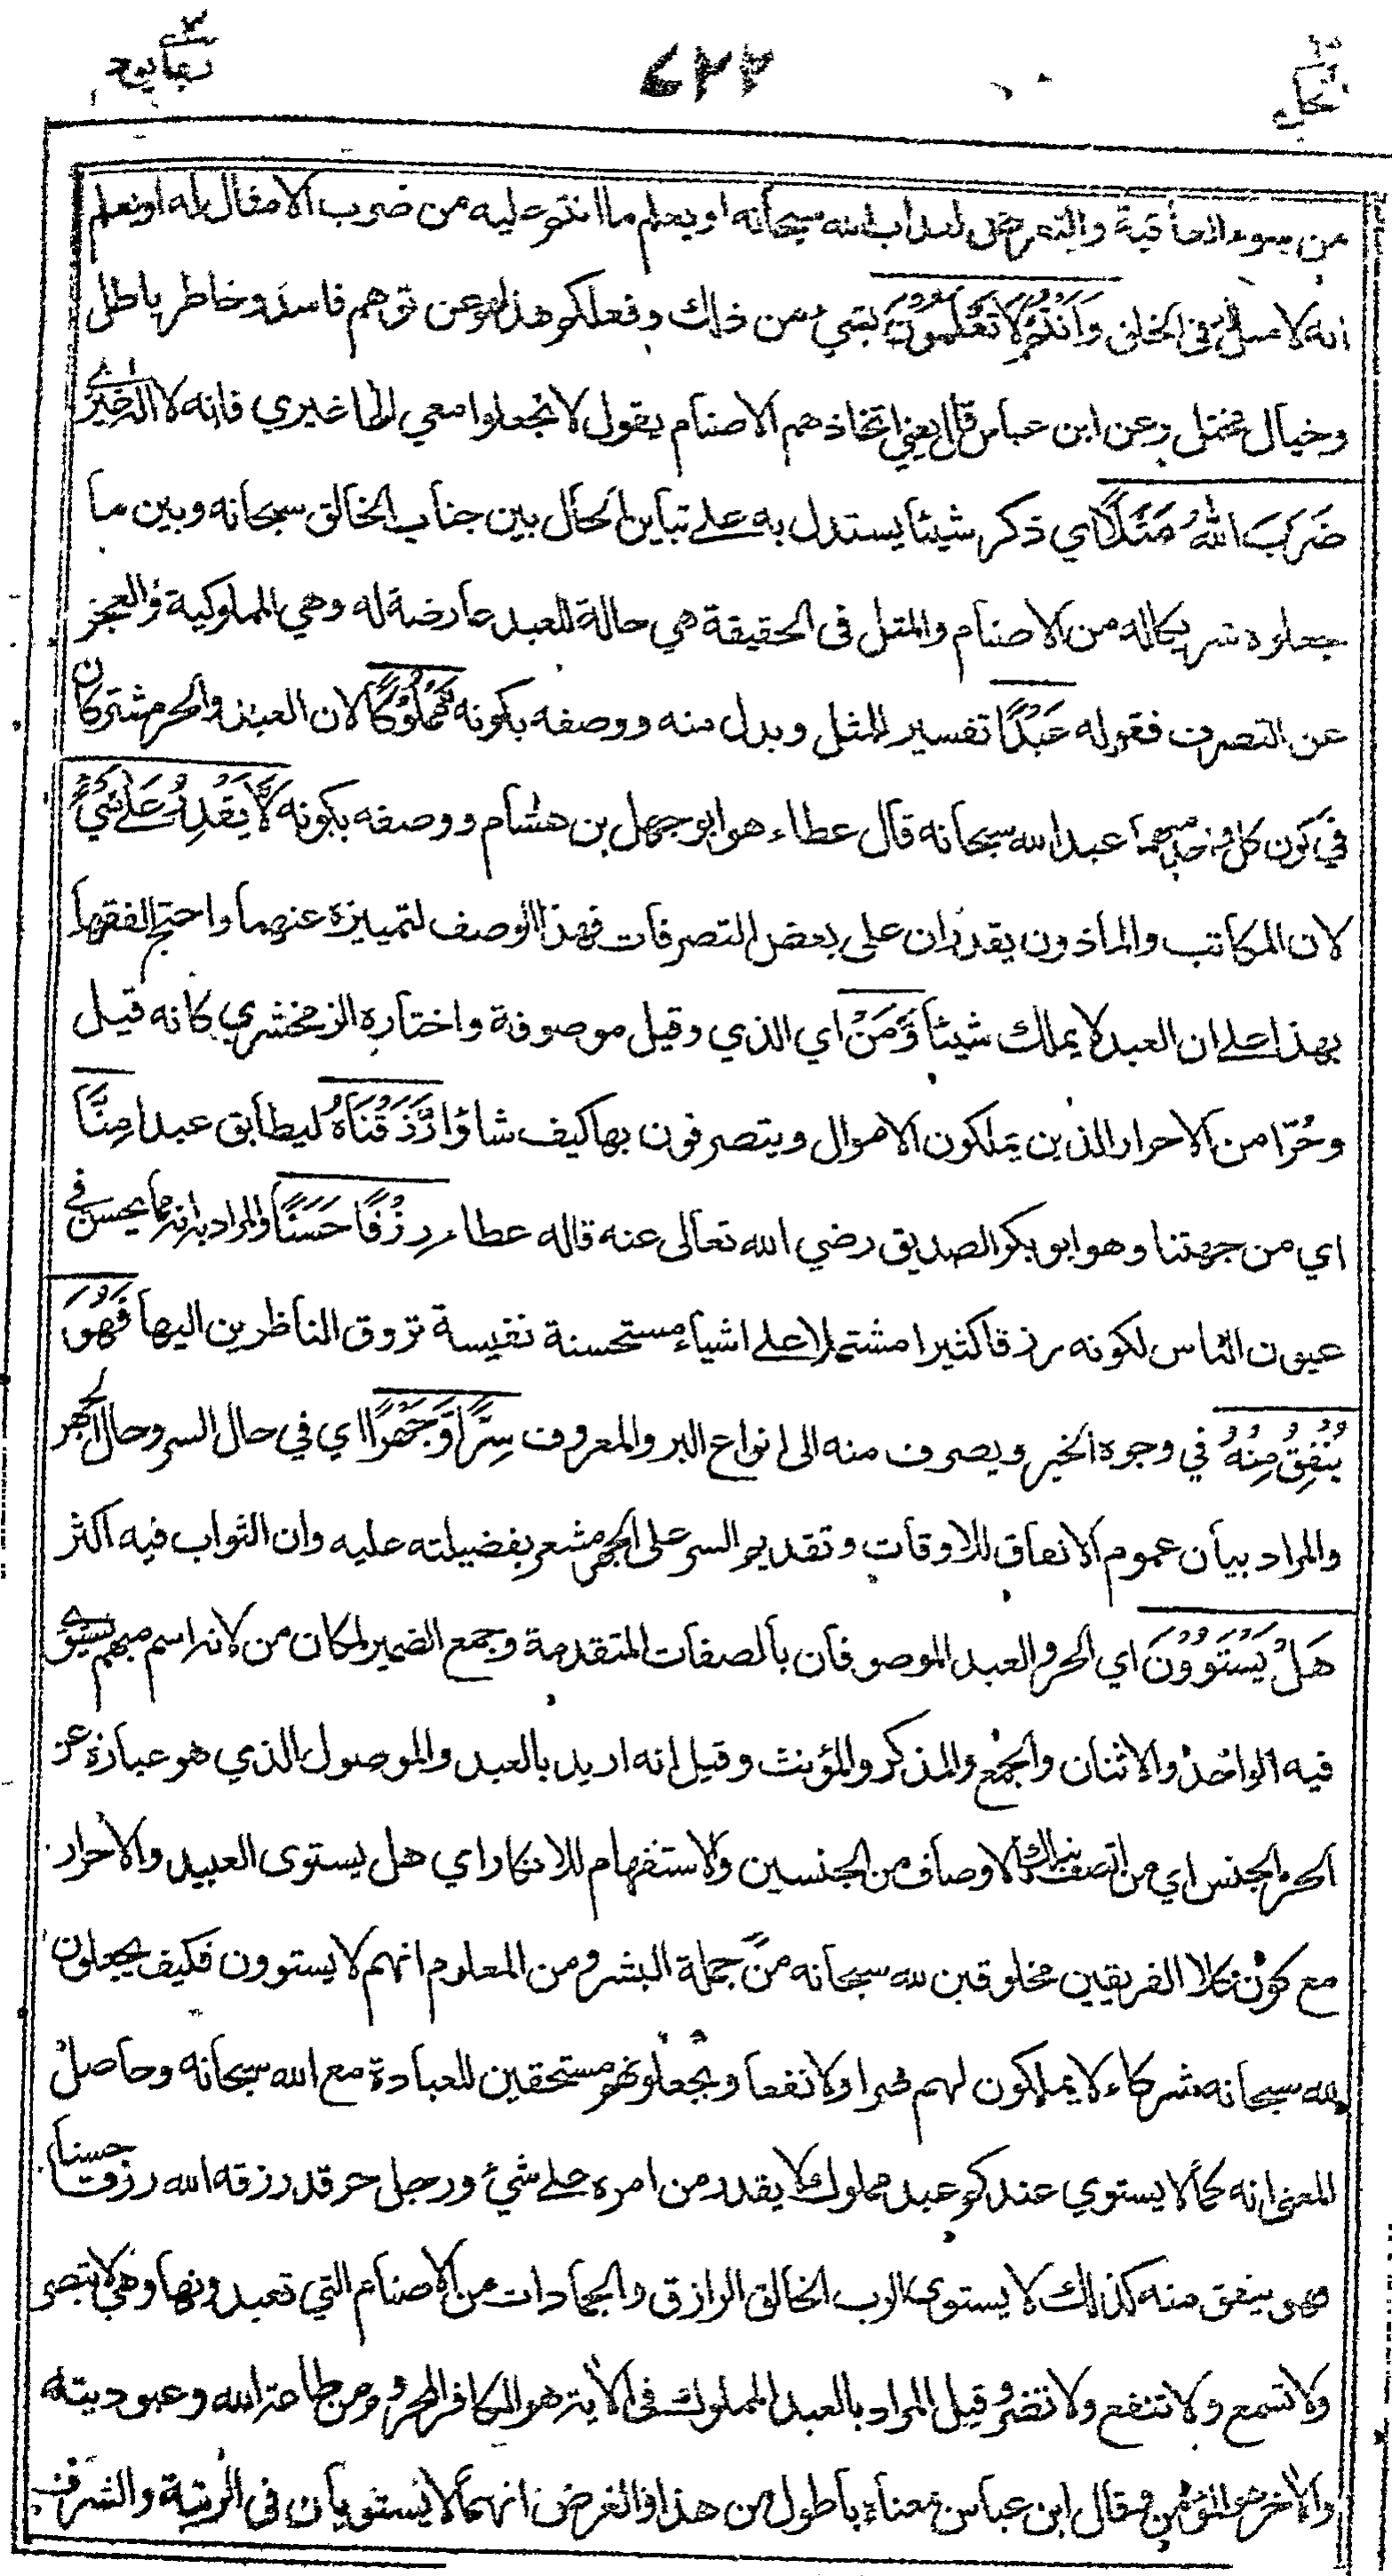 ربما يود
٦٢٢
النحل
من سوء العاقبة والتعرض لعذاب الله سبحانه او يعلم ما انتم عليه من ضرب الامثال له او يعلم
انه لا مثل له في الخلق وَاَنْتُمْ لَا تَعْلَمُوْنَ بشيء من ذلك وفعلكم هذا هو عن توهم فاسد وخاطر باطل
وخيال مختل وعن ابن عباس قال يعني اتخاذهم الاصنام يقول لا تجعلوا معي الها غيري فانه لا اله غيري
ضَرَبَ اللهُ مَثَلًا اي ذكر شيئا يستدل به على تباين الحال بين جناب الخالق سبحانه وبين ما
جعلوه شريكا له من الاصنام والمثل في الحقيقة هي حالة للعبد عارضة له وهي المملوكية والعجز
عن التصرف فقوله عَبْدًا تفسير للمثل وبدل منه ووصفه بكونه مَّمْلُوْكًا لان العبد والحر مشتركان
في كون كل واحد منهما عبدا لله سبحانه قال عطاء هو ابو جهل بن هشام ووصفه بكونه لَّا يَقْدِرُ عَلٰى شَيْءٍ
لان المكاتب والماذون يقدران على بعض التصرفات فهذا الوصف لتمييزه عنهما واحتج الفقهاء
بهذا على ان العبد لا يملك شيئا وَّمَنْ اي الذي وقيل موصوفة واختاره الزمخشري كانه قيل
وحُرّا من الاحرار الذين يملكون الاموال ويتصرفون بها كيف شاؤا رَّزَقْنَاهُ ليطابق عبدا مِنَّا
اي من جهتنا وهو ابو بكر الصديق رضي الله تعالى عنه قاله عطاء رِزْقًا حَسَنًا والمراد به انه مما يحسن في
عيون الناس لكونه رزقا كثيرا مشتملا على اشياء مستحسنة نفيسة تروق الناظرين اليها فَهُوَ
يُنْفِقُ مِنْهُ في وجوه الخير ويصرف منه الى انواع البر والمعروف سِرًّا وَّجَهْرًا اي في حال السر وحال الجهر
والمراد بيان عموم الانفاق للاوقات وتقديم السر على الجهر مشعر بفضيلته عليه وان الثواب فيه اكثر
هَلْ يَسْتَوُوْنَ اي الحر والعبد الموصوفان بالصفات المتقدمة وجمع الضمير لمكان من لانه اسم مبهم يستوي
فيه الواحد والاثنان والجمع والمذكر والمؤنث وقيل انه اريد بالعبد والموصول الذي هو عبارة عن
الحر الجنس اي من اتصف بتلك الاوصاف من الجنسين والاستفهام للانكار اي هل يستوى العبيد والاحرار
مع كون كلا الفريقين مخلوقين لله سبحانه من جملة البشر ومن المعلوم انهم لا يستوون فكيف يجعلون
لله سبحانه شركاء لا يملكون لهم ضرا ولا نفعا ويجعلونهم مستحقين للعبادة مع الله سبحانه وحاصل
المعنى انه كما لا يستوي عندكم عبد مملوك لا يقدر من امره على شيء ورجل حر قد رزقه الله رزقا حسنا
فهو ينفق منه كذلك لا يستوى الرب الخالق الرازق والجمادات من الاصنام التي تعبدونها وهي لا تبصر
ولا تسمع ولا تنفع ولا تضر وقيل المراد بالعبد المملوك في الاية هو الكافر المحروم من طاعة الله وعبوديته
والاخر هو المؤمن وقال ابن عباس معناه باطول من هذا والغرض انهما لا يستويان في الرتبة والشرف